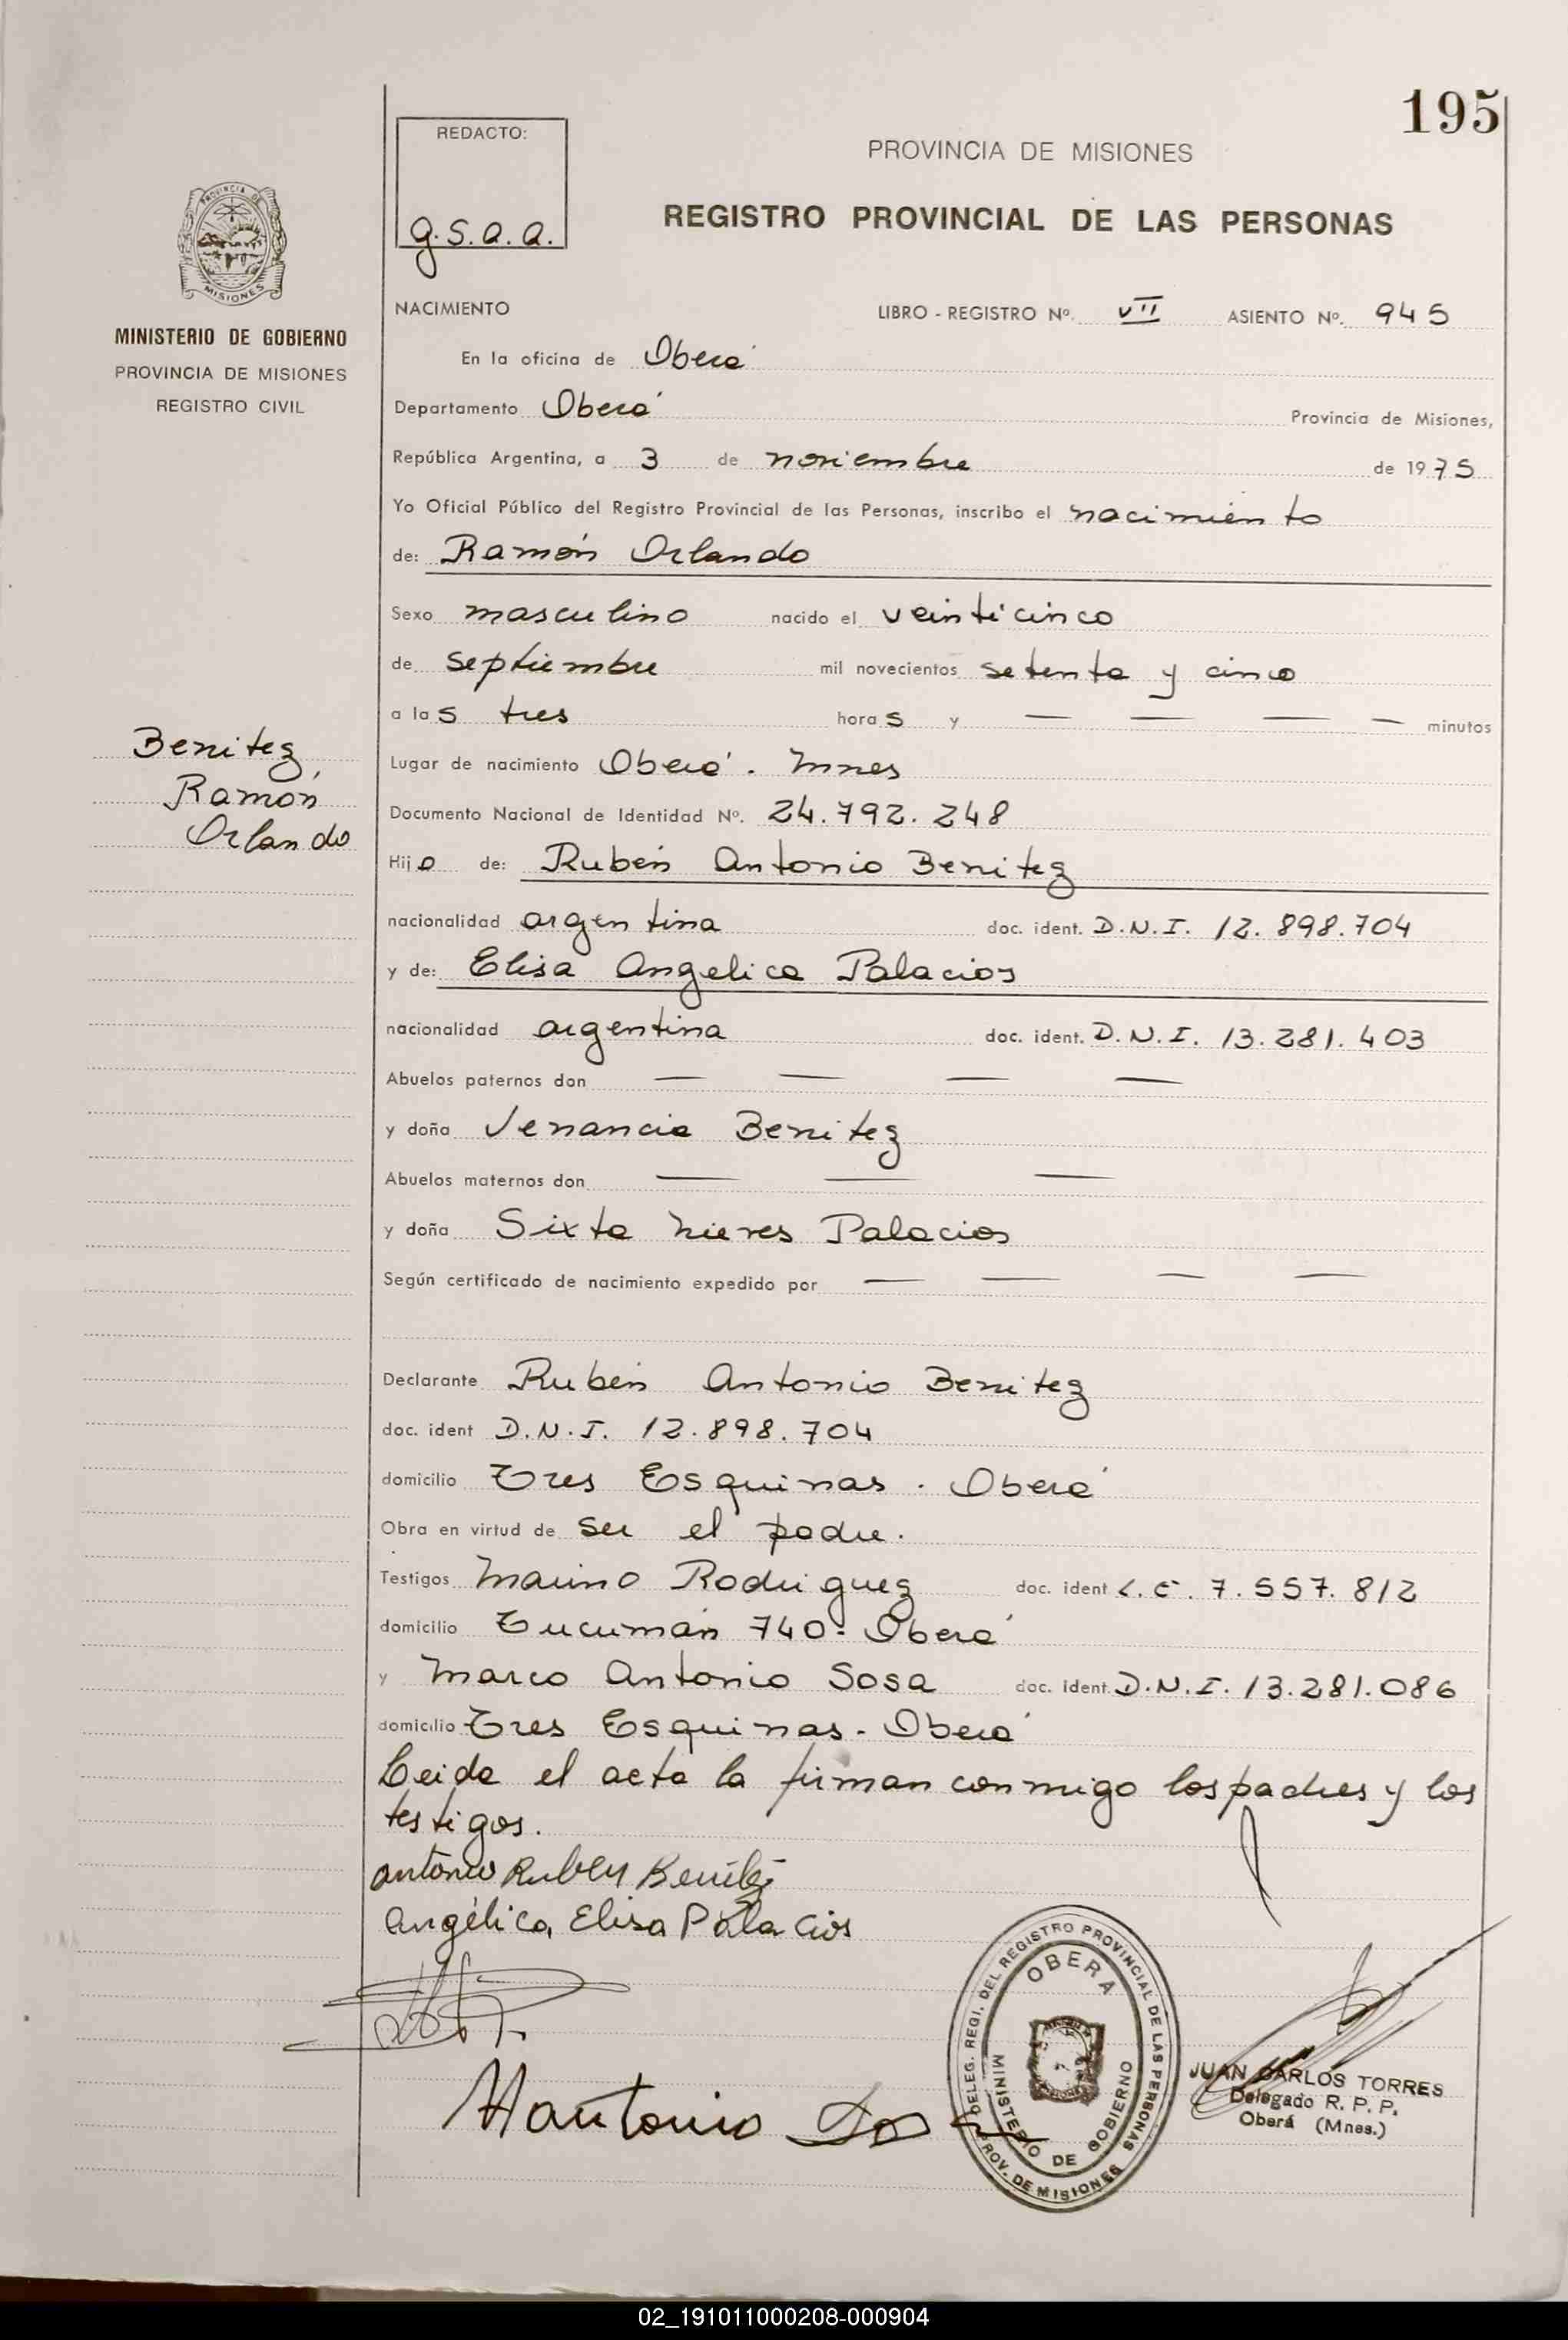 195
REDACTO:
g.s.a.a.
PROVINCIA DE MISIONES
REGISTRO PROVINCIAL DE LAS PERSONAS
PROVINCIA DE
MISIONES
MINISTERIO DE GOBIERNO
PROVINCIA DE MISIONES
REGISTRO CIVIL
NACIMIENTO LIBRO - REGISTRO Nº. VII ASIENTO Nº. 945
En la oficina de Oberá
Departamento Oberá Provincia de Misiones,
República Argentina, a 3 de noviembre de 1975
Yo Oficial Público del Registro Provincial de las Personas, inscribo el nacimiento
de: Ramón Orlando
Sexo masculino nacido el veinticinco
de septiembre mil novecientos setenta y cinco
a las tres horas y — — — — minutos
Benitez
Ramón
Orlando
Lugar de nacimiento Oberá. Mnes
Documento Nacional de Identidad Nº. 24.792.248
Hijo de: Rubén Antonio Benitez
nacionalidad argentina doc. ident. D.N.I. 12.898.704
y de: Elisa Angelica Palacios
nacionalidad argentina doc. ident. D.N.I. 13.281.403
Abuelos paternos don — — — —
y doña Venancia Benitez
Abuelos maternos don — — —
y doña Sixta Nieves Palacios
Según certificado de nacimiento expedido por — — — —
Declarante Rubén Antonio Benitez
doc. ident D.N.I. 12.898.704
domicilio Tres Esquinas. Oberá
Obra en virtud de ser el padre.
Testigos Mauno Rodriguez doc. ident L.E. 7.557.812
domicilio Tucumán 740- Oberá
y Marco Antonio Sosa doc. ident. D.N.I. 13.281.086
domicilio Tres Esquinas - Oberá
Leida el acta la firman conmigo los padres y los
testigos.
antonio Ruben Benitez
Angélica Elisa Palacios
DELEG. REGI. DEL REGISTRO PROVINCIAL DE LAS PERSONAS
OBERA
MINISTERIO DE GOBIERNO
PROV. DE MISIONES
JUAN CARLOS TORRES
Delegado R. P. P.
Oberá (Mnes.)
02_191011000208-000904